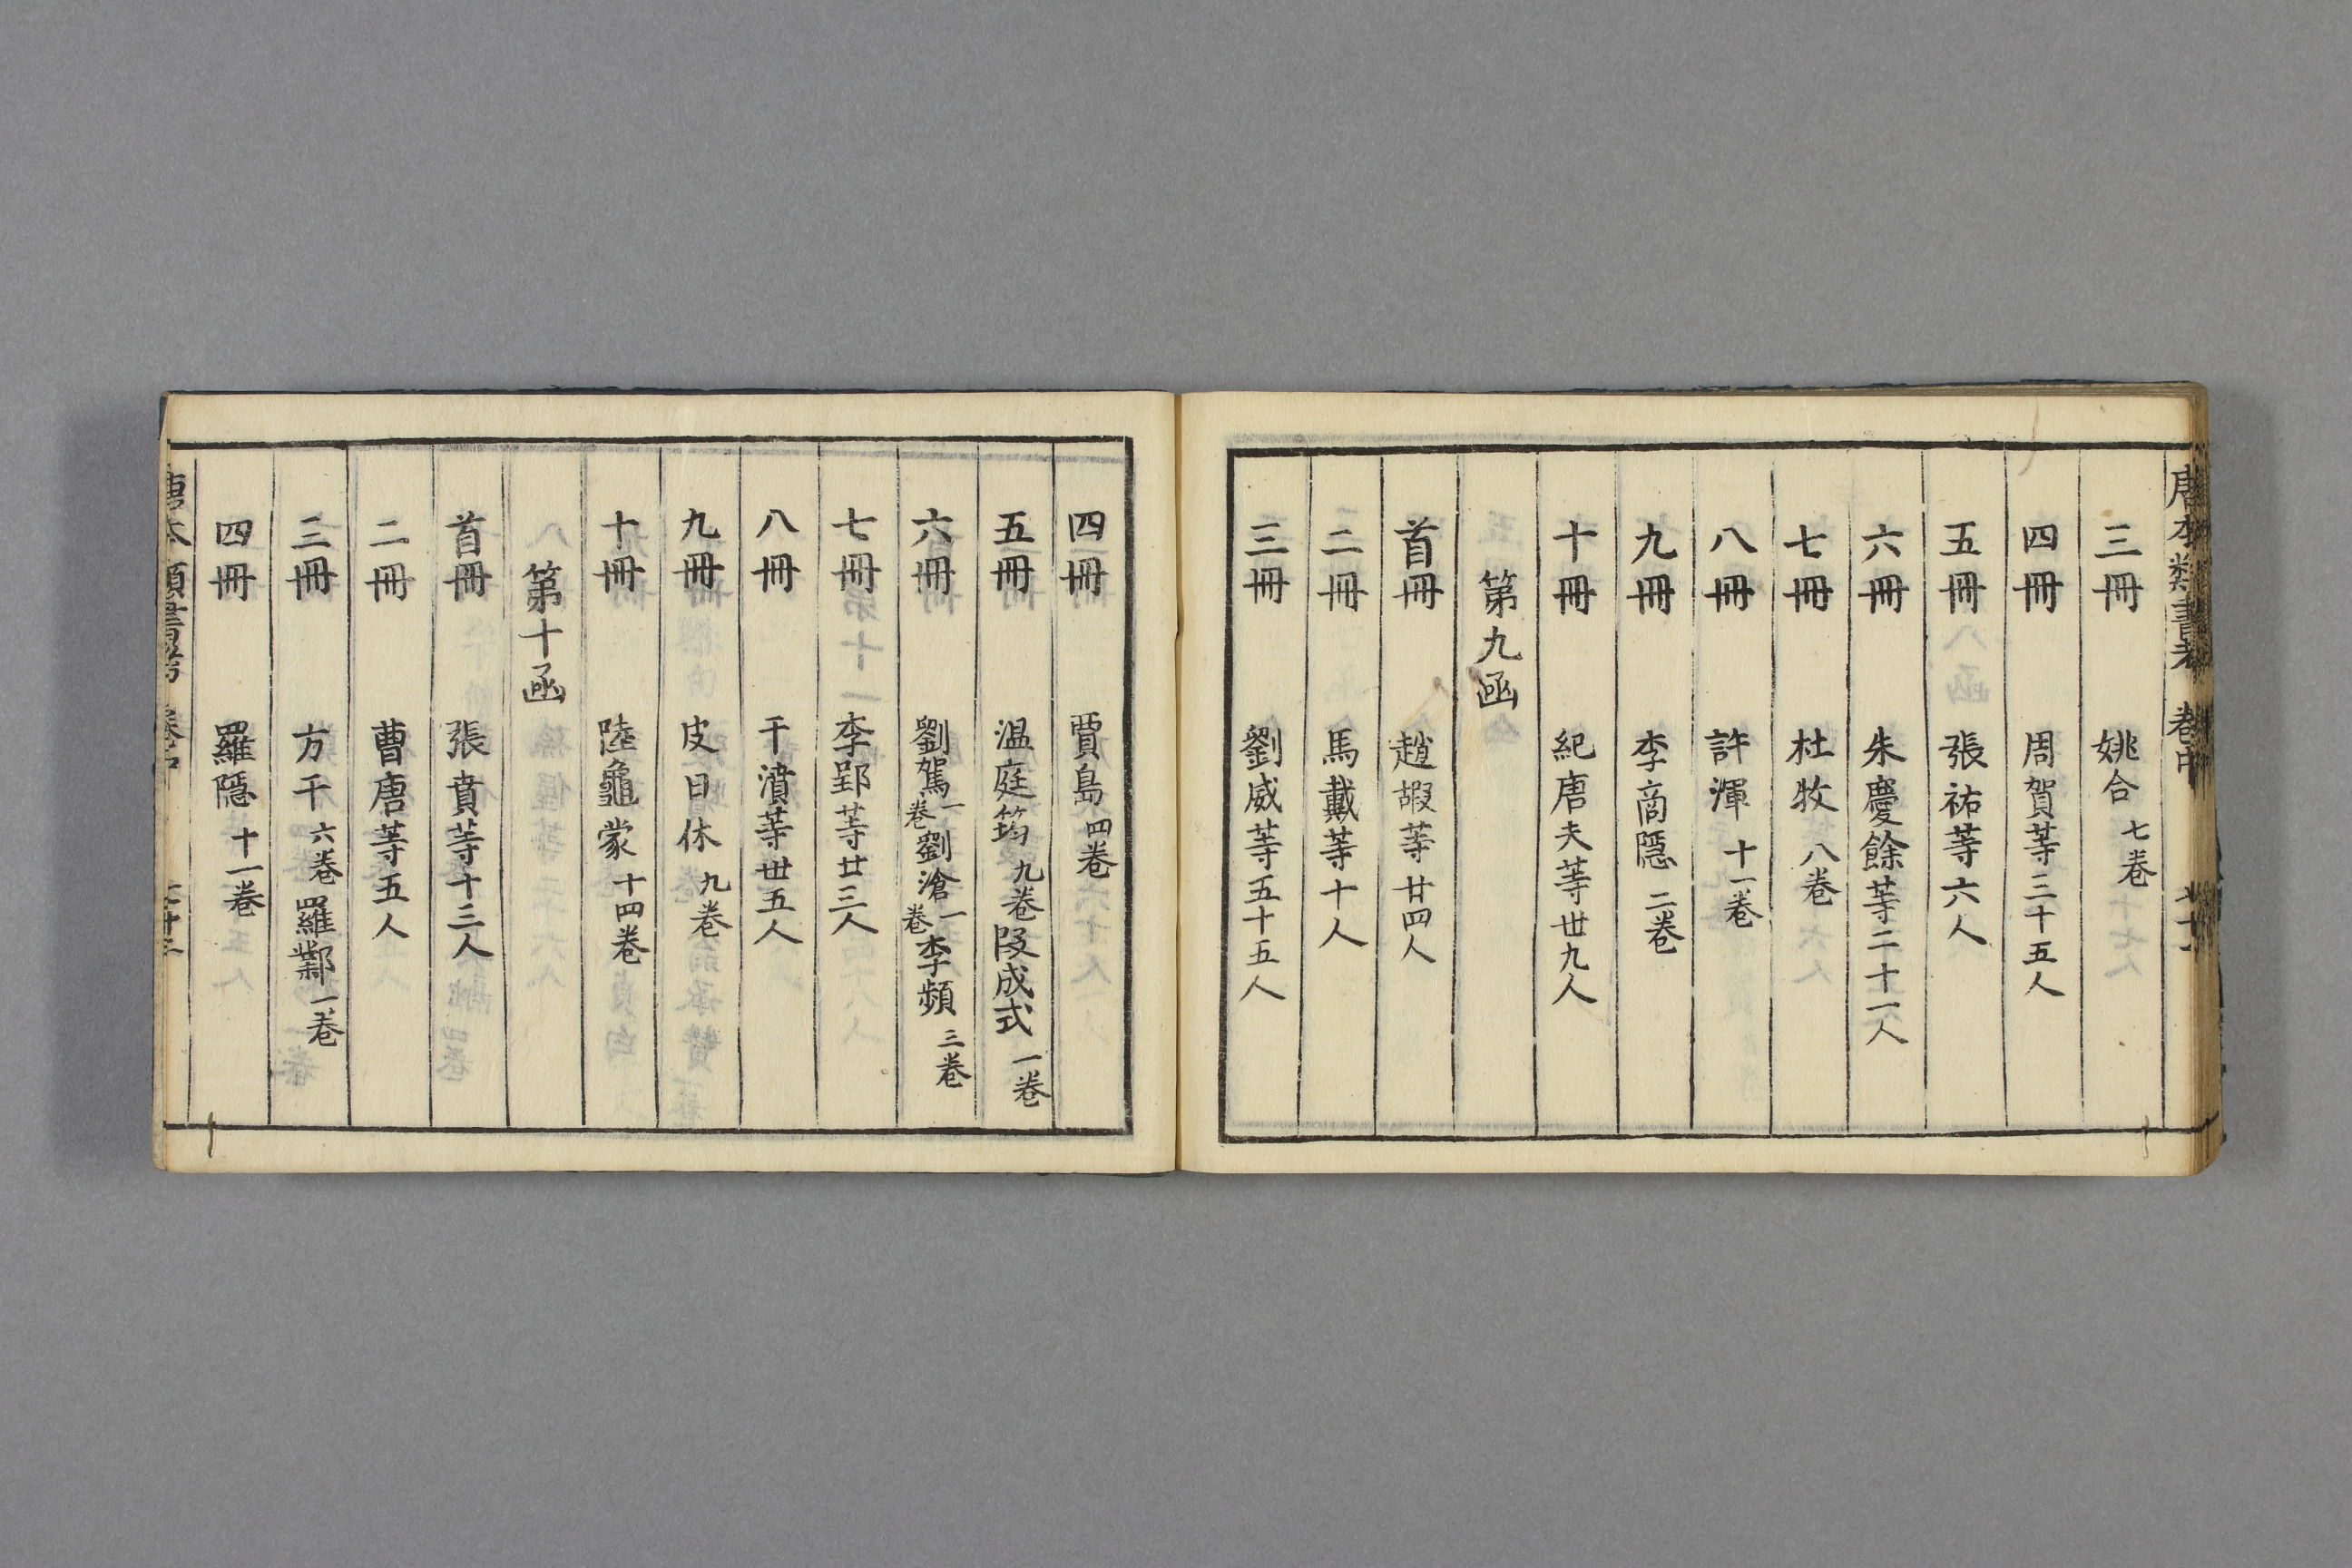 唐本類書考 卷中
三冊 姚合 七卷
四冊 周賀等三十五人
五冊 張祐等六人
六冊 朱慶餘等二十一人
七冊 杜牧 八卷
八冊 許渾 十一卷
九冊 李商隱 二卷
十冊 紀唐夫等丗九人
第九函
首冊 趙嘏等廿四人
二冊 馬戴等十人
三冊 劉威等五十五人
四冊 賈島 四卷
五冊 温庭筠 九卷 段成式 一卷
六冊 劉駕 一卷 劉滄 一卷 李頻 三卷
七冊 李郢等廿三人
八冊 于濆等丗五人
九冊 皮日休 九卷
十冊 陸龜蒙 十四卷
第十函
首冊 張賁等十三人
二冊 曹唐等五人
三冊 方干 六卷 羅鄴 一卷
四冊 羅隱 十一卷